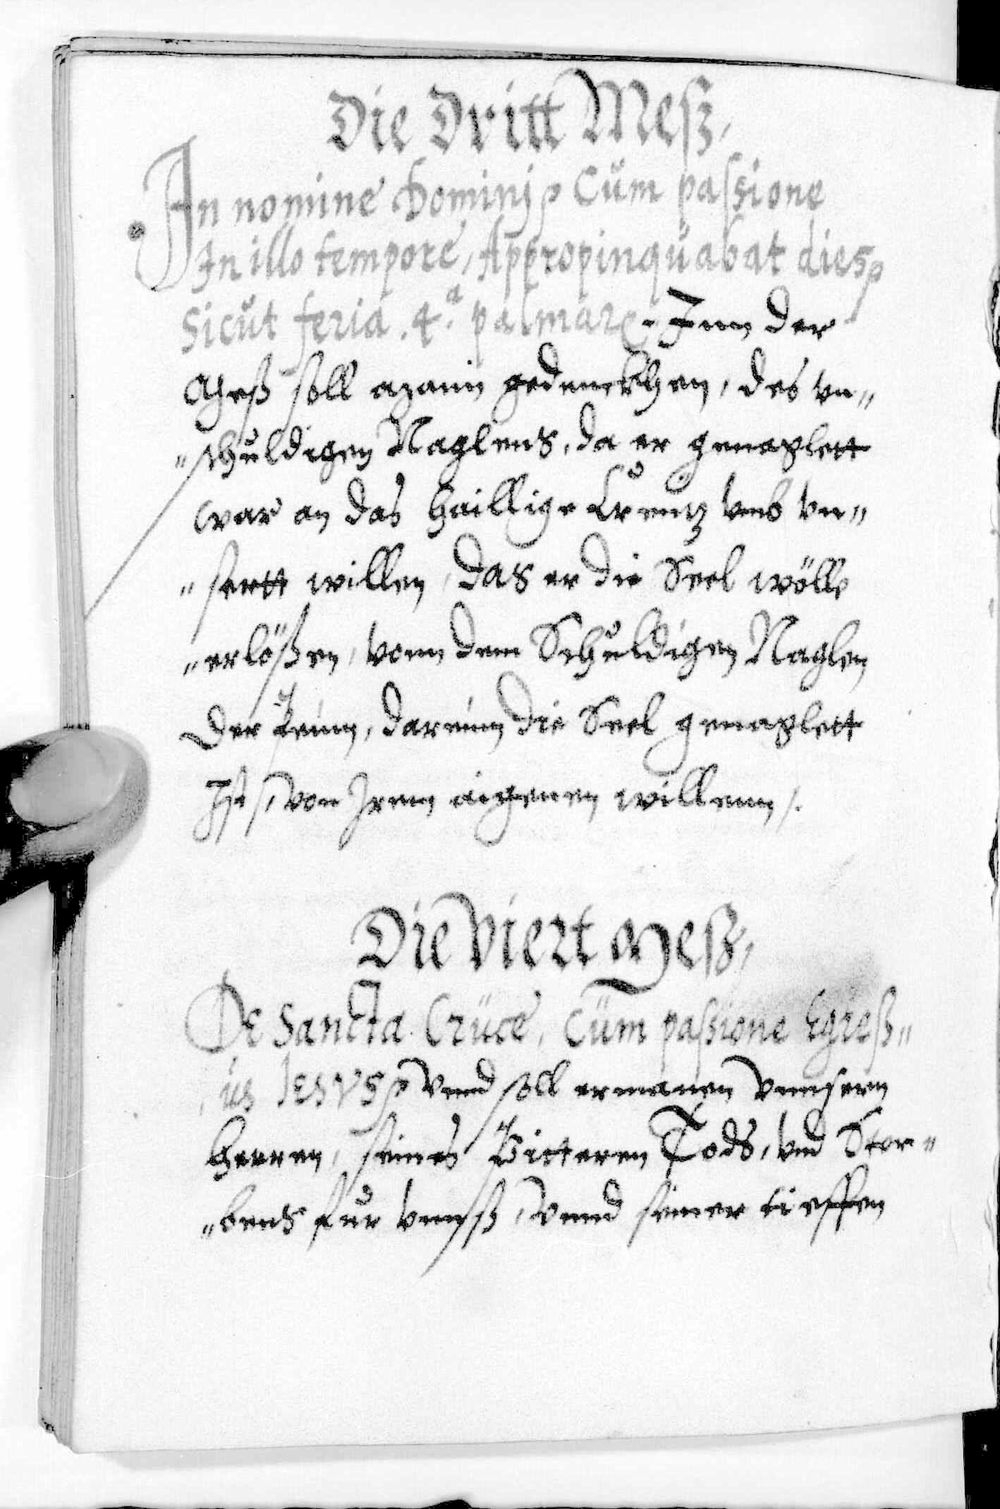 Die Dritt Meß,
In nomine Domini ꝛ Cum passione
In illo tempore, Appropinquabat dies ꝛ
Sicut feria .4.ᵃ palmarꝫ. Inn der
Meß soll gedenckhen, des vn„
„schuldigen Naglens, da er genaglett
war an das haillige Creutz vmb vn„
„sertt willen, das er die Seel wölle
„erlößen, vonn dem Schuldigen Naglen
der Peinn, darinn die Seel genaglett
Ist, von Irem aigenen willenn /.
Die Viert Meß,
De Sancta Cruce, Cum passione Egreß„
„us IESVS ꝛ Vnnd soll ermanen vnnsern
herren, seines Bitteren Tods, vnd Ster„
„bens für vnnß, Vnnd seiner tieffen